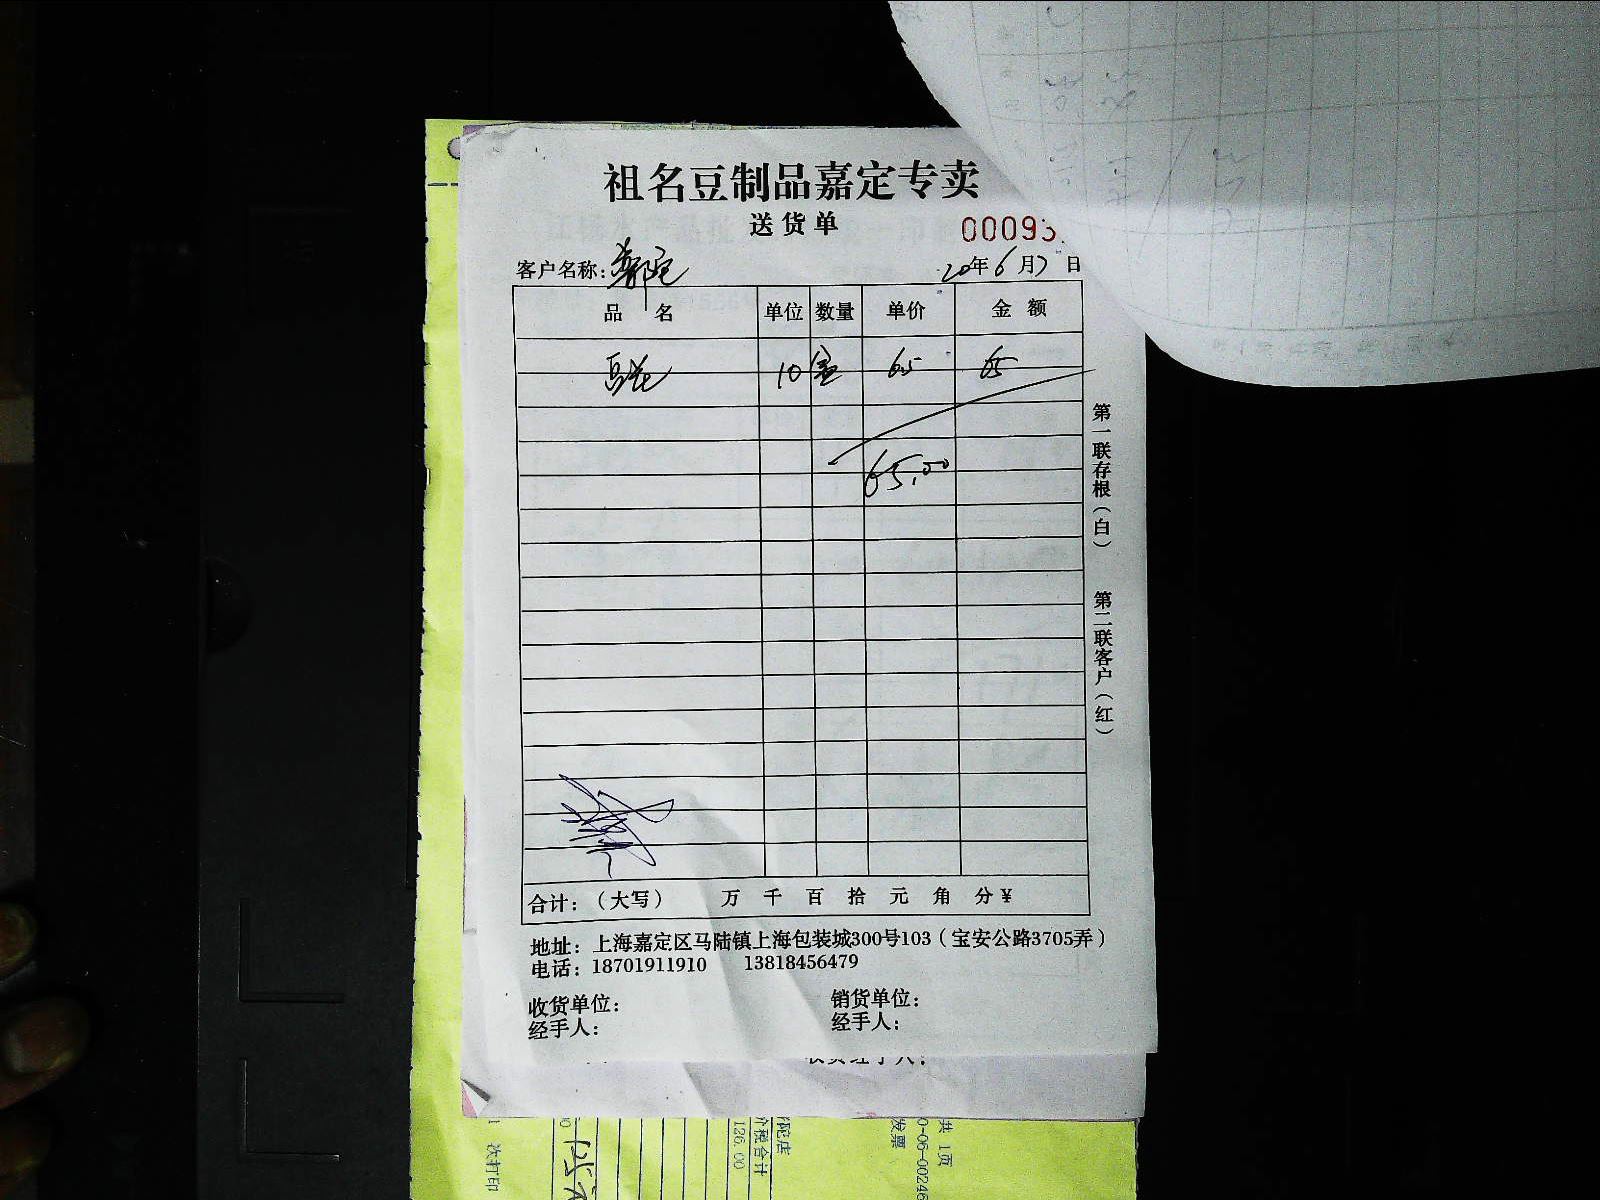 祖名豆制品嘉定专卖
送货单
00093
客户名称:
20年6月7日
品 名 单位 数量 单价 金 额
豆花 10 盒 65 65
65.00
第一联存根(白) 第二联客户(红)
合计:(大写) 万 千 百 拾 元 角 分¥
地址:上海嘉定区马陆镇上海包装城300号103(宝安公路3705弄)
电话:18701911910 13818456479
收货单位: 销货单位:
经手人: 经手人:
共 1页
0-06-00246
发票
陀店
价税合计
126.00
1 次打印